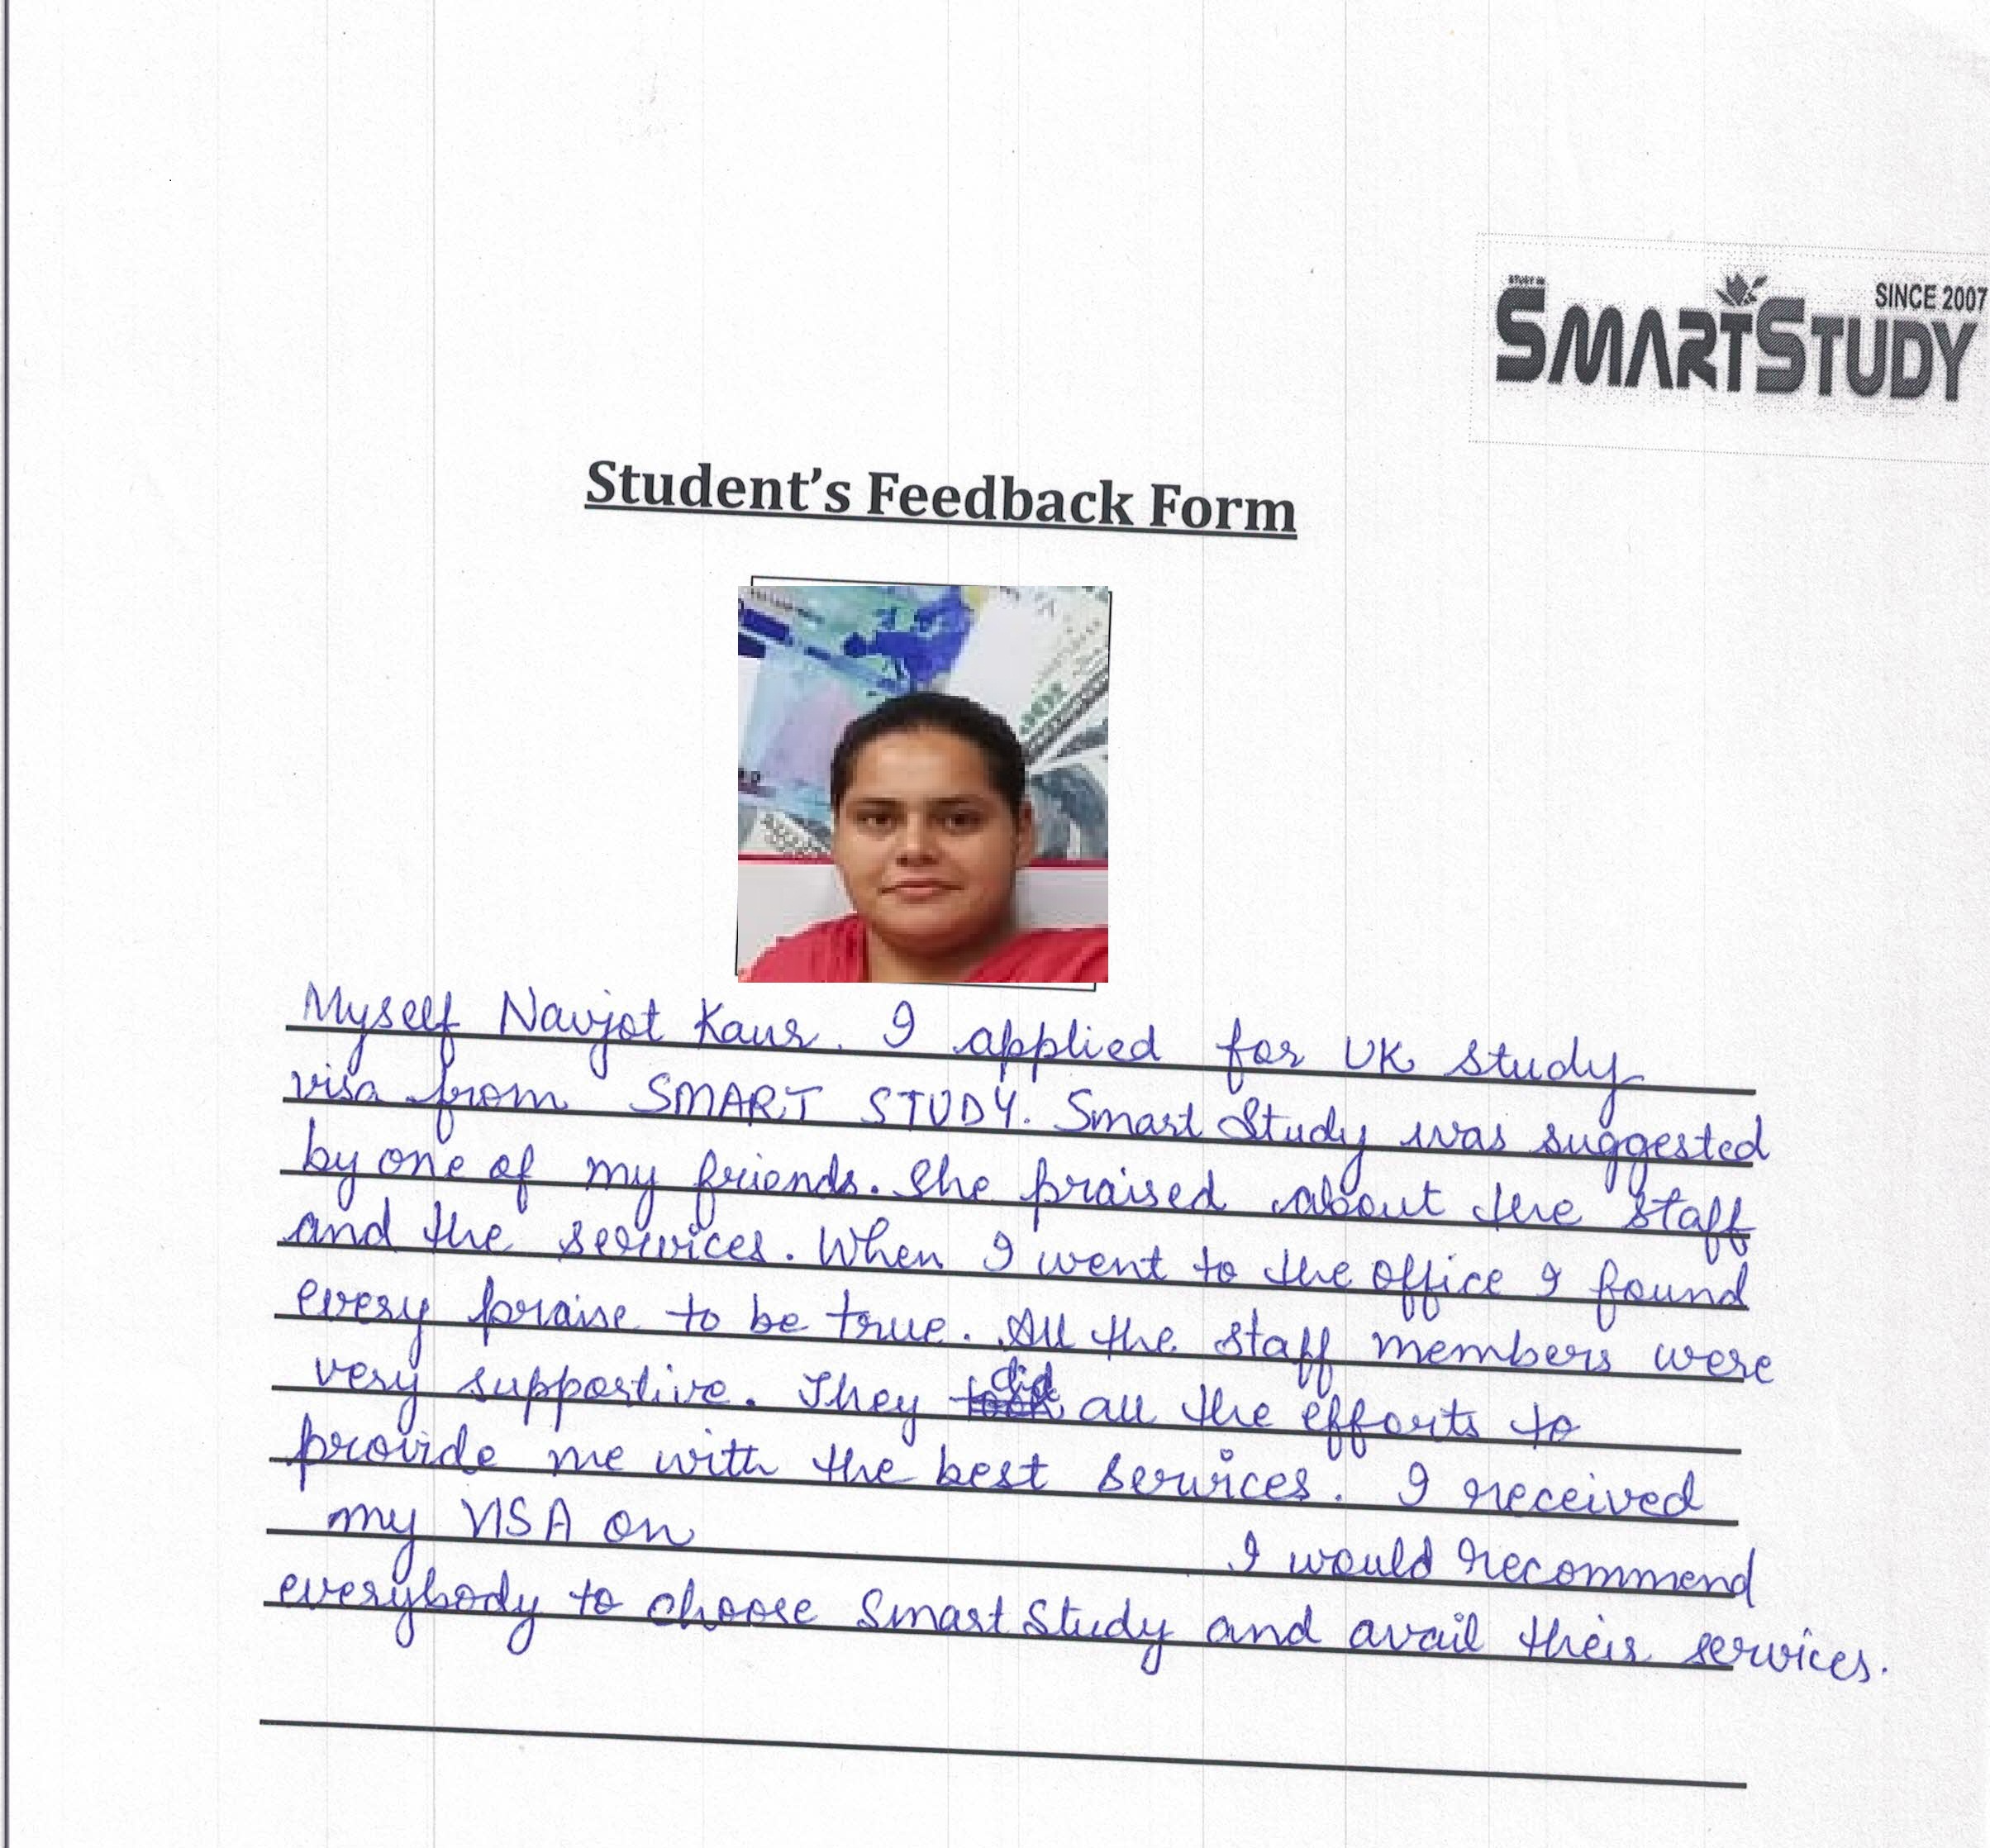 STUDY IN
SINCE 2007
SMARTSTUDY
Student's Feedback Form
Myself Navjot Kaur. I applied for UK study
visa from SMART STUDY. Smart Study was suggested
by one of my friends. She praised about the staff
and the services. When I went to the office I found
every praise to be true. All the staff members were
very supportive. They took did all the efforts to
provide me with the best services. I received
my VISA on I would recommend
everybody to choose Smart Study and avail their services.